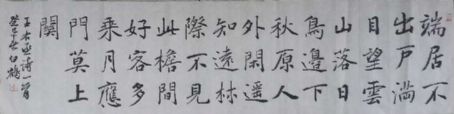 端居不
出戶满
目望雲
山落日
鳥邊下
秋原人
外閑遥
知遠林
際不見
此檐間
好客多
乘月應
門莫上
關
王右丞詩一首